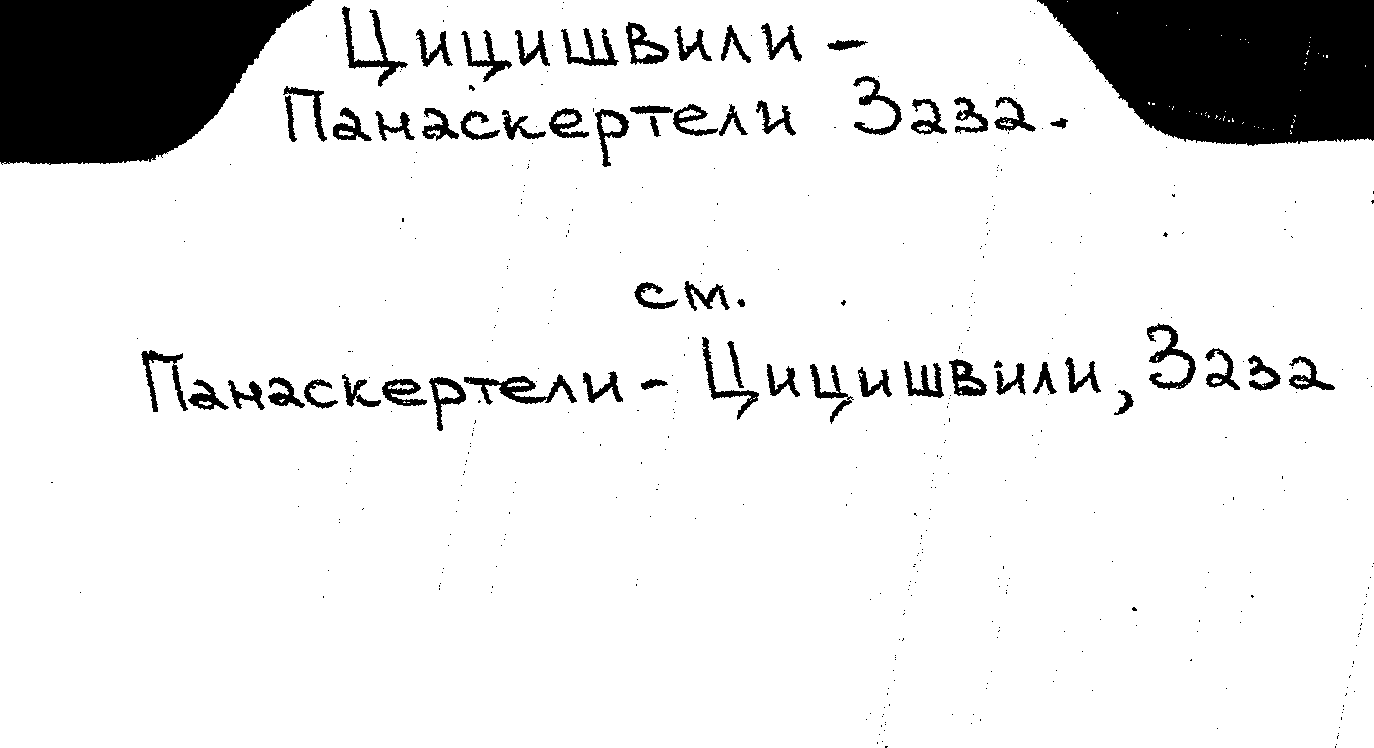 Цицишвили -
Панаскертели Заза.
см.
Панаскертели - Цицишвили, Заза